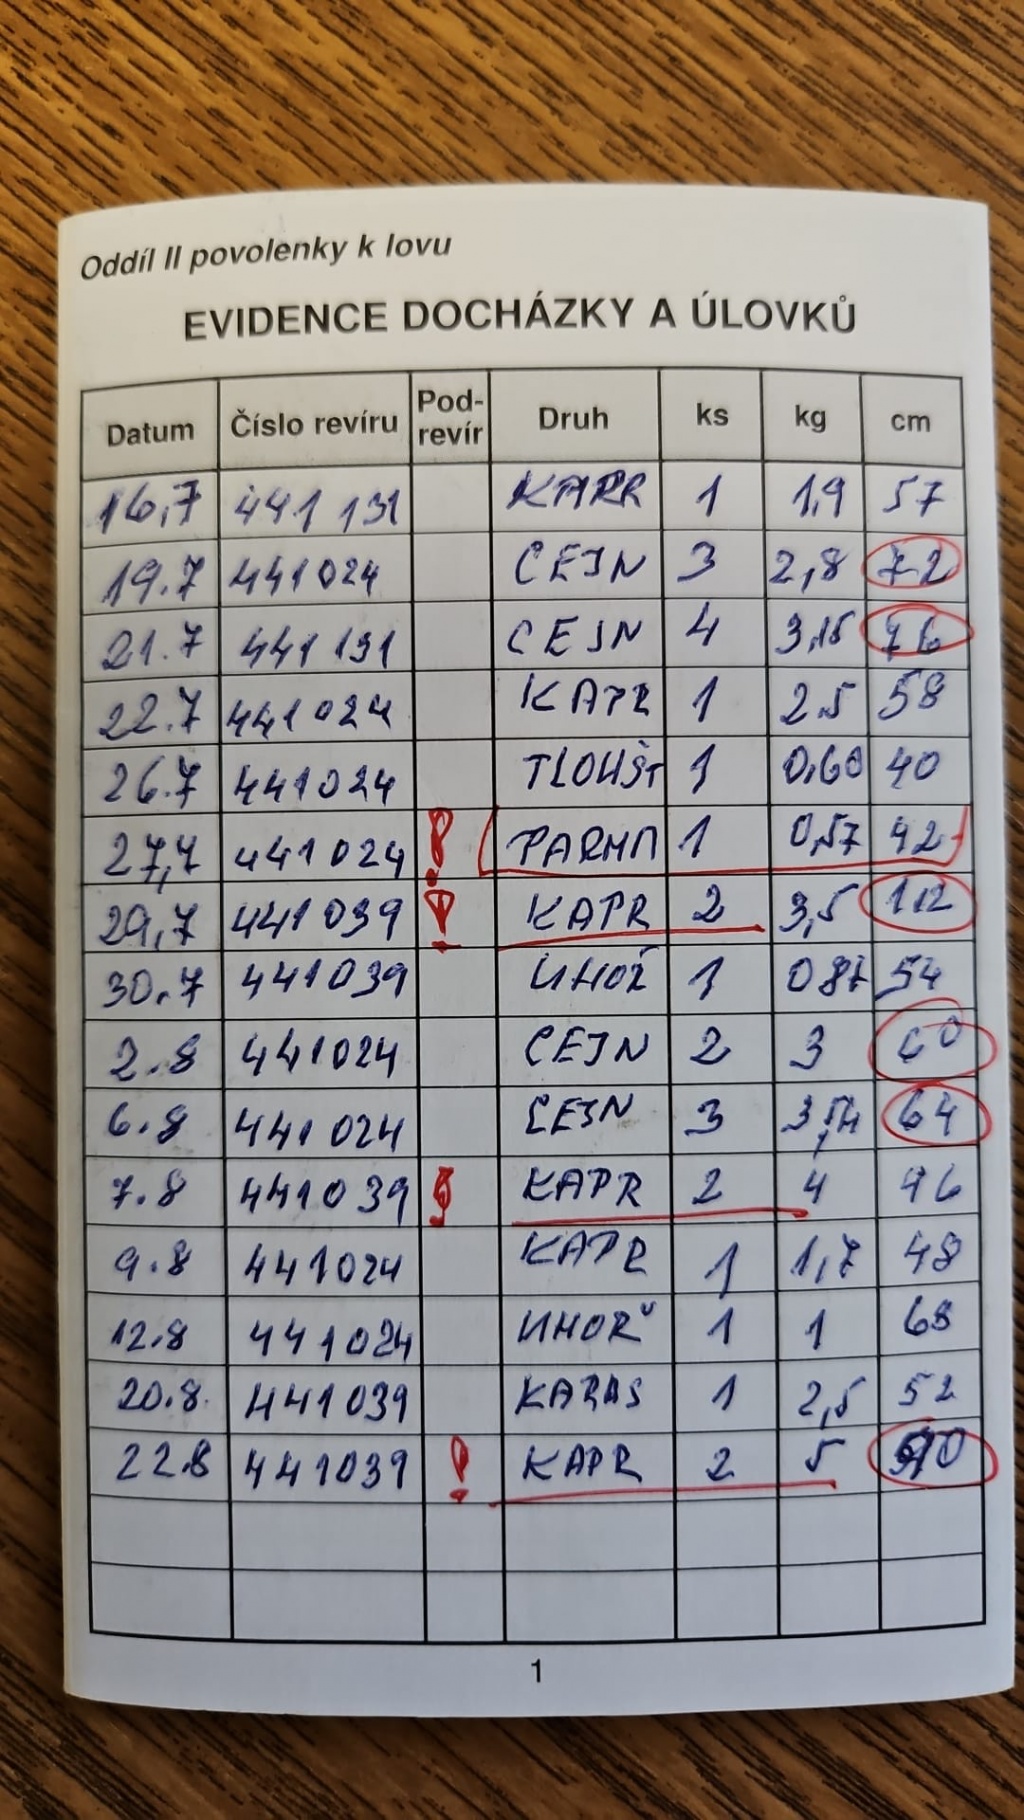 Oddíl II povolenky k lovu
EVIDENCE DOCHÁZKY A ÚLOVKŮ
Datum Číslo revíru Pod-revír Druh ks kg cm
16,7 441 131 KAPR 1 1,9 57
19.7 441024 CEJN 3 2,8 72
21.7 441 131 CEJN 4 3,15 76
22.7 441024 KAPR 1 2.5 58
26.7 441024 TLOUŠT 1 0,60 40
27,7 441024 ! PARMA 1 0,57 42
29,7 441039 ! KAPR 2 3,5 112
30.7 441039 UHOŘ 1 0 87 54
2.8 441024 CEJN 2 3 60
6.8 441024 CEJN 3 64
7.8 441039 ! KAPR 2 4 96
9.8 441024 KAPR 1 1,7 48
12.8 441024 UHOŘ 1 1 68
20.8. 441039 KARAS 1 2,5 52
22.8 441039 ! KAPR 2 5
1